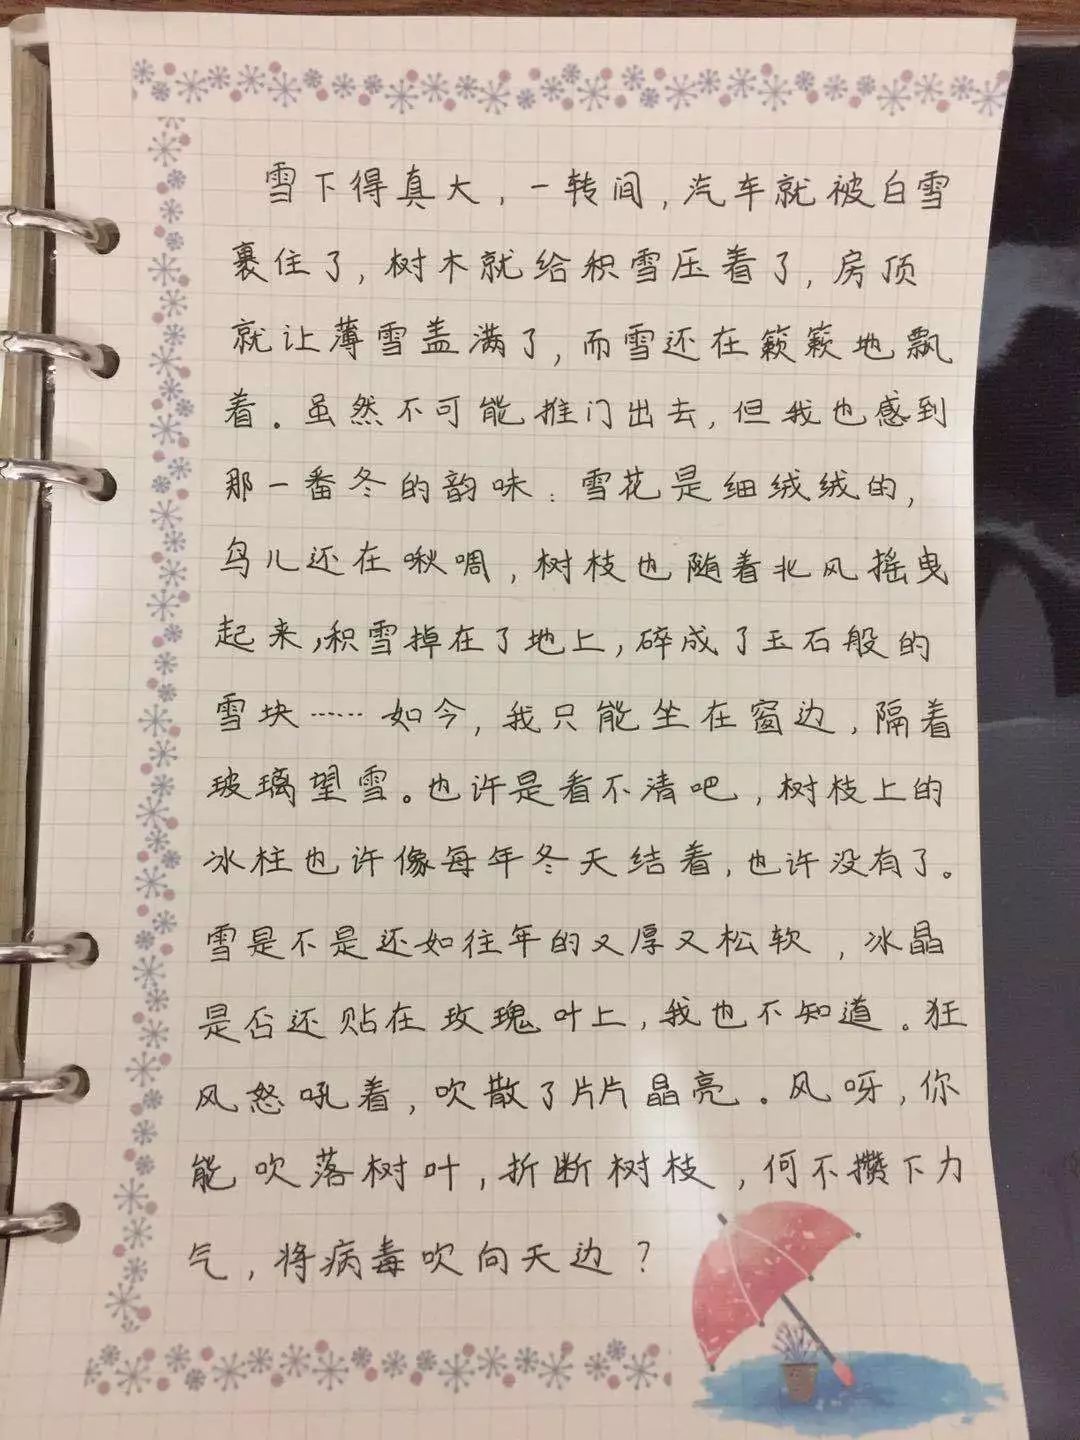 雪下得真大，一转间，汽车就被白雪
裹住了，树木就给积雪压着了，房顶
就让薄雪盖满了，而雪还在簌簌地飘
着。虽然不可能推门出去，但我也感到
那一番冬的韵味：雪花是细绒绒的，
鸟儿还在啾啁，树枝也随着北风摇曳
起来，积雪掉在了地上，碎成了玉石般的
雪块……如今，我只能坐在窗边，隔着
玻璃望雪。也许是看不清吧，树枝上的
冰柱也许像每年冬天结着，也许没有了。
雪是不是还如往年的又厚又松软，冰晶
是否还贴在玫瑰叶上，我也不知道。狂
风怒吼着，吹散了片片晶亮。风呀，你
能吹落树叶，折断树枝，何不攒下力
气，将病毒吹向天边？